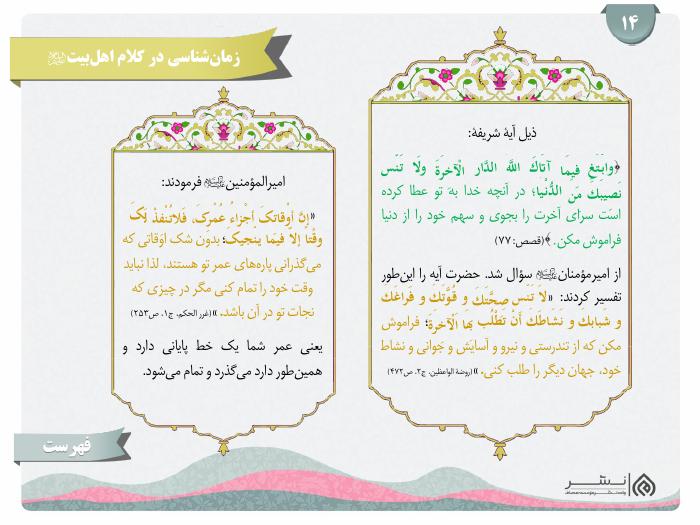 ۱۴
زمان‌شناسی در کلام اهل‌بیت
ذیل آیهٔ شریفه:
﴿وابْتَغِ فیمَا آتَاكَ اللَّهُ الدَّارَ الْآخِرَةَ ولَا تَنْسَ
نَصیبَكَ مِنَ الدُّنْیَا؛ در آنچه خدا به تو عطا کرده
است سرای آخرت را بجوی و سهم خود را از دنیا
فراموش مکن.﴾(قصص: ۷۷)
از امیرمؤمنان سؤال شد. حضرت آیه را این‌طور
تفسیر کردند: «لَا تَنْسَ صِحَّتَكَ وَ قُوَّتَكَ وَ فَراغَكَ
وَ شَبابَكَ وَ نَشَاطَكَ أَنْ تَطْلُبَ بِهَا الْآخِرَةَ؛ فراموش
مکن که از تندرستی و نیرو و آسایش و جوانی و نشاط
خود، جهان دیگر را طلب کنی.» (روضة الواعظین، ج۲، ص۴۷۲)
امیرالمؤمنین فرمودند:
«إِنَّ أَوْقاتَكَ أَجْزاءُ عُمْرِكَ، فَلاتُنْفِذْ لَكَ
وَقْتًا إِلّا فیما یُنْجیكَ؛ بدون شک اوقاتی که
می‌گذرانی پاره‌های عمر تو هستند، لذا نباید
وقت خود را تمام کنی مگر در چیزی که
نجات تو در آن باشد.» (غرر الحکم، ج۱، ص۲۵۳)
یعنی عمر شما یک خط پایانی دارد و
همین‌طور دارد می‌گذرد و تمام می‌شود.
فهرست
نشر